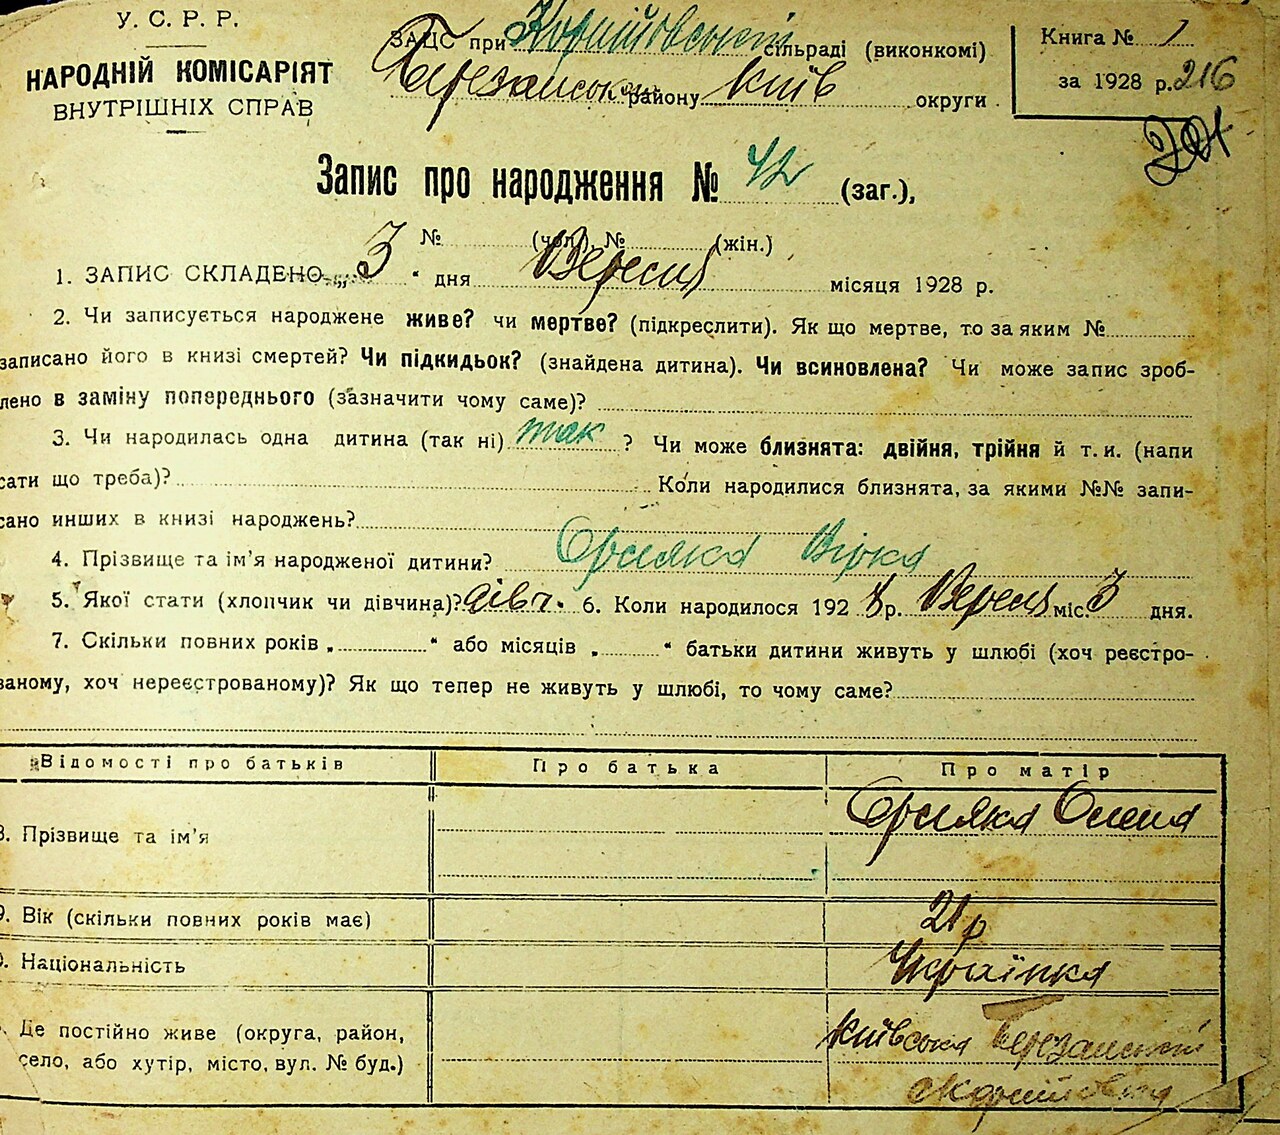 У. С. Р. Р.
НАРОДНІЙ КОМІСАРІЯТ
ВНУТРІШНІХ СПРАВ
ЗАЦС при Корніївській сільраді (виконкомі)
Березанськ району Київ округи
Книга № 1
за 1928 р. 216
Запис про народження № 42 (заг.),
№ (чол.) № (жін.)
1. ЗАПИС СКЛАДЕНО „ 3 " дня Вересня місяця 1928 р.
2. Чи записується народжене живе? чи мертве? (підкреслити). Як що мертве, то за яким №
записано його в книзі смертей? Чи підкидьок? (знайдена дитина). Чи всиновлена? Чи може запис зроб-
лено в заміну попереднього (зазначити чому саме)?
3. Чи народилась одна дитина (так ні) так ? Чи може близнята: двійня, трійня й т. и. (напи
сати що треба)? Коли народилися близнята, за якими №№ запи-
сано инших в книзі народжень?
4. Прізвище та ім'я народженої дитини? Вірка
5. Якої стати (хлопчик чи дівчина)? дівч. 6. Коли народилося 192 8 р. Вересня міс. 3 дня.
7. Скільки повних років „ " або місяців „ " батьки дитини живуть у шлюбі (хоч реєстро-
ваному, хоч нереєстрованому)? Як що тепер не живуть у шлюбі, то чому саме?
Відомості про батьків Про батька Про матір
8. Прізвище та ім'я Олена
9. Вік (скільки повних років має) 21 р
Національність Українка
Де постійно живе (округа, район,
село, або хутір, місто, вул. № буд.)
Київська Березанський
с Корніївка